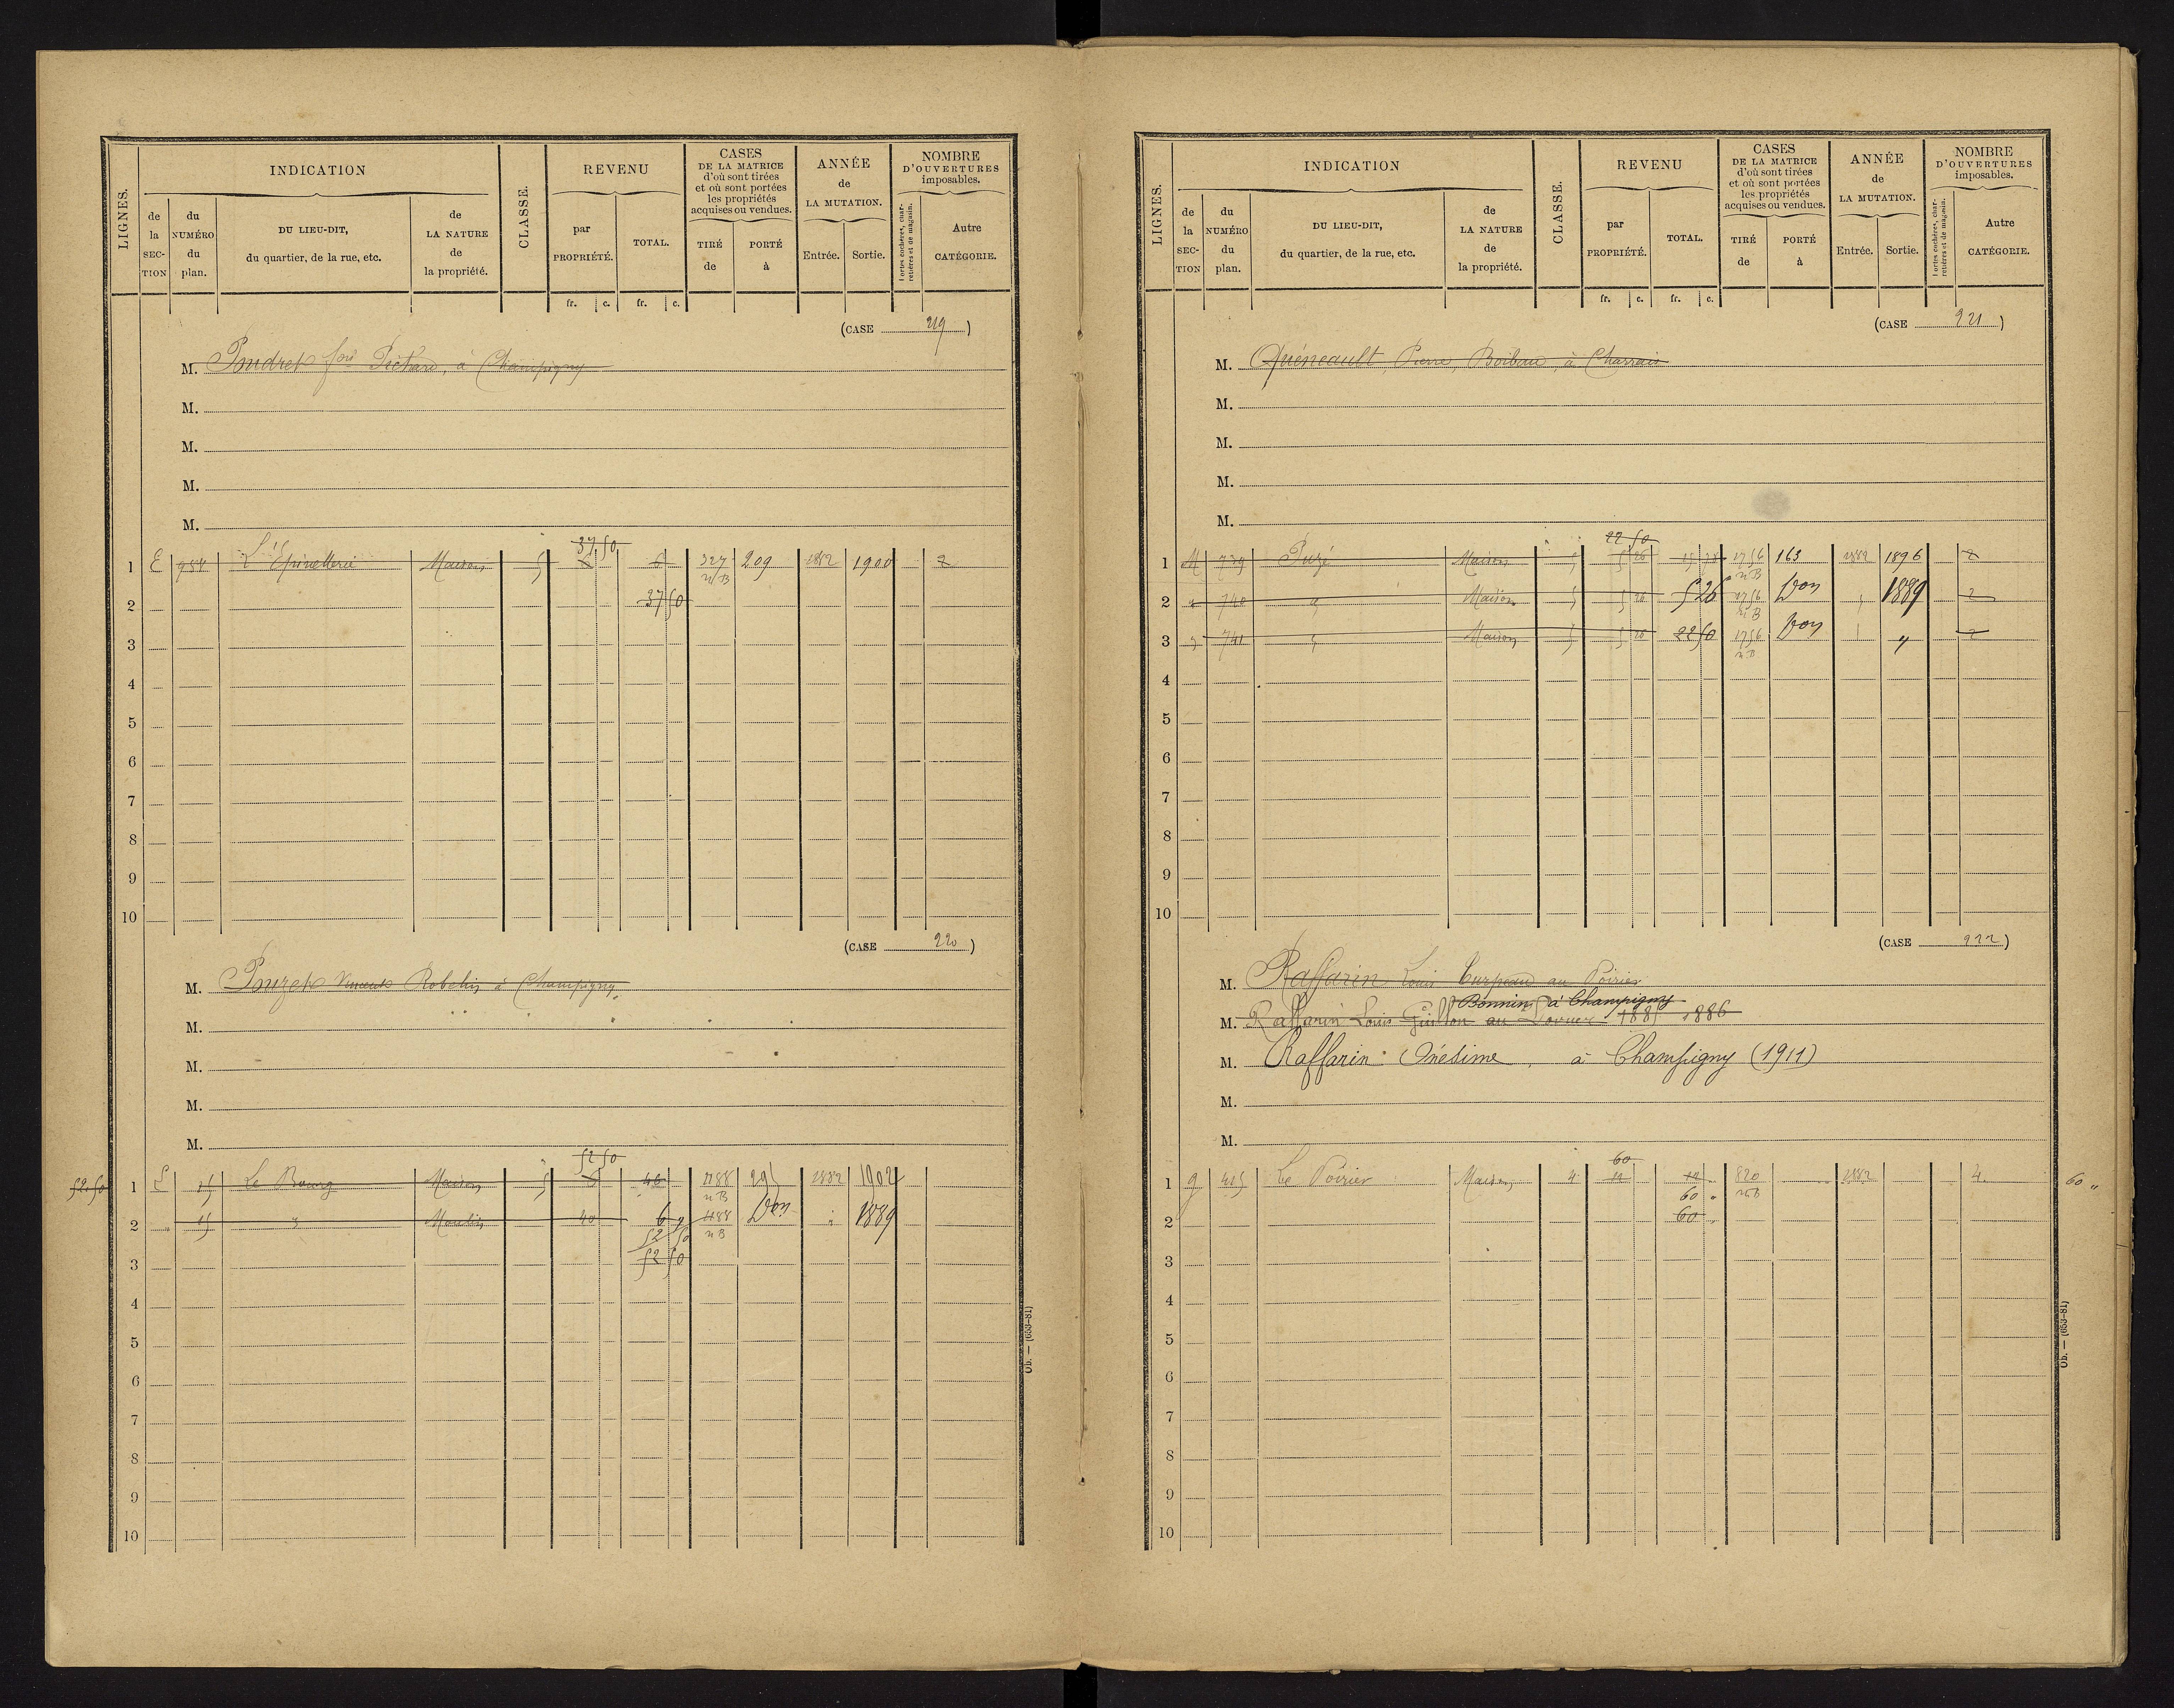 LIGNES.
INDICATION
CLASSE.
REVENU
CASES
DE LA MATRICE
d'où sont tirées
et où sont portées
les propriétés
acquises ou vendues.
ANNÉE
de
LA MUTATION.
NOMBRE
D'OUVERTURES
imposables.
de la SECTION
du NUMÉRO du plan.
DU LIEU-DIT,
du quartier, de la rue, etc.
de LA NATURE de la propriété.
par PROPRIÉTÉ.
TOTAL.
TIRÉ de
PORTÉ à
Entrée.
Sortie.
Portes cochères, charretières et de magasin.
Autre CATÉGORIE.
fr. c. fr. c.
(CASE 219)
M. Poudret fois Pichard, à Champigny
M.
M.
M.
M.
37 50
1 E 958 L'Epinetterie Maison 5 6 6 327 209 1882 1900 2
n/B
2 37 50
3
4
5
6
7
8
9
10
(CASE 220)
M. Pouzet Vincent Robelin à Champigny
M.
M.
M.
M.
52 50
52.50 1 15 Le Bourg Maison 5 46 1188 295 1882 1902
n B
2 " 15 " Moulin 40 6 " 1188 Don " 1889
52 50 n B
3 52 50
4
5
6
7
8
9
10
Ob. — (653-81)
LIGNES.
INDICATION
CLASSE.
REVENU
CASES
DE LA MATRICE
d'où sont tirées
et où sont portées
les propriétés
acquises ou vendues.
ANNÉE
de
LA MUTATION.
NOMBRE
D'OUVERTURES
imposables.
de la SECTION
du NUMÉRO du plan.
DU LIEU-DIT,
du quartier, de la rue, etc.
de LA NATURE de la propriété.
par PROPRIÉTÉ.
TOTAL.
TIRÉ de
PORTÉ à
Entrée.
Sortie.
Portes cochères, charretières et de magasin.
Autre CATÉGORIE.
fr. c. fr. c.
(CASE 221)
M. Quéneault, Pierre, Boibeau, à Charrais
M.
M.
M.
M.
22 50
1 M 739 Puzé Maison 5 5 26 15 78 1756 163 1882 1896 2
n B
2 " 740 " Maison 5 5 26 5 26 1756 Don " 1889 2
n B
3 " 741 " Maison 5 5 26 22 50 1756 Don " " 2
n B
4
5
6
7
8
9
10
(CASE 222)
M. Raffarin Louis Turpeau au Poirier
Bonnin, à Champigny
M. Raffarin Louis Guillon au 1885 1886
M. Raffarin Onésime, à Champigny (1911)
M.
M.
60
1 G 415 Le Poirier Maison 4 12 12 820 1882 4 60 "
60 " n B
2 60 "
3
4
5
6
7
8
9
10
Ob. — (653-81)